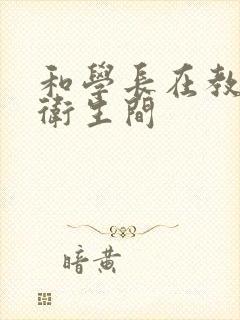 和學長在教
衛生間
暗黄